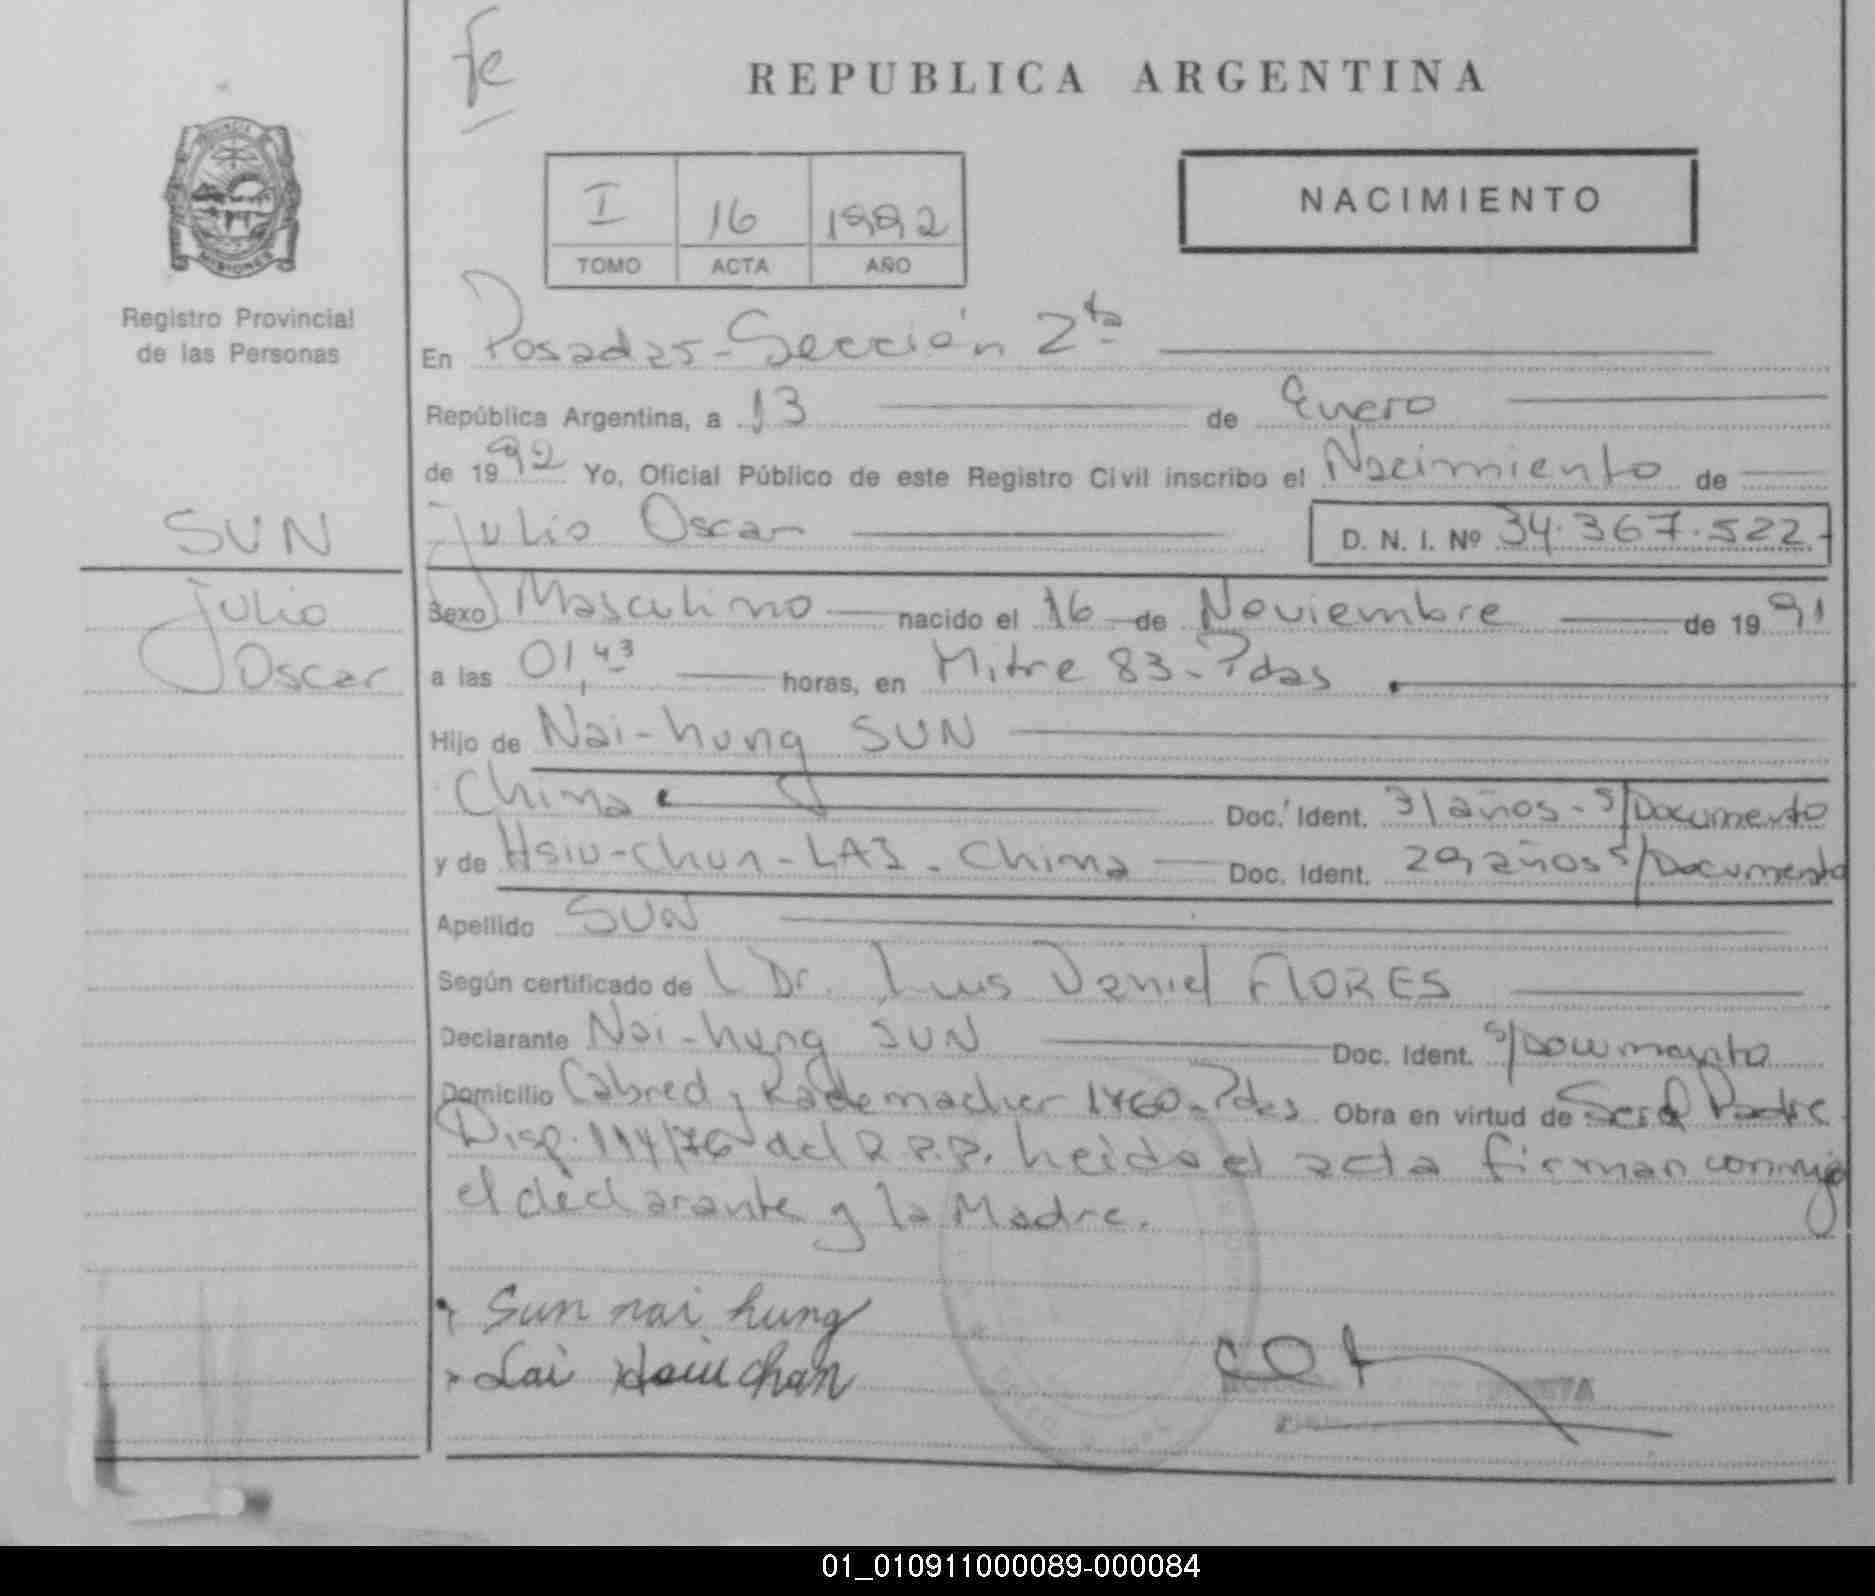 fe
REPUBLICA ARGENTINA
NACIMIENTO
I 16 1992
TOMO ACTA AÑO
MISIONES
Registro Provincial
de las Personas
En Posadas - Sección 2ta
República Argentina, a 13 de Enero
de 1992 Yo, Oficial Público de este Registro Civil inscribo el Nacimiento de
SUN
Julio Oscar D. N. I. Nº 34.367.522
Julio
Oscar
Sexo Masculino nacido el 16 de Noviembre de 1991
a las 01,43 horas, en Mitre 83 - Pdas
Hijo de Nai-hung SUN
China Doc. Ident. 31 años - s/Documento
y de Hsiu-chun-LAI - China Doc. Ident. 29 años s/Documento
Apellido SUN
Según certificado de Dr. Luis Daniel FLORES
Declarante Nai-hung SUN Doc. Ident. s/Documento
Domicilio Cabred y Rademacher 1460 - Pdas Obra en virtud de Ser el Padre
Disp. 114/76 del R.P.P. heida el acta firman conmigo
el declarante y la Madre.
Sun nai hung
Lai Hsiu chan
01_010911000089-000084